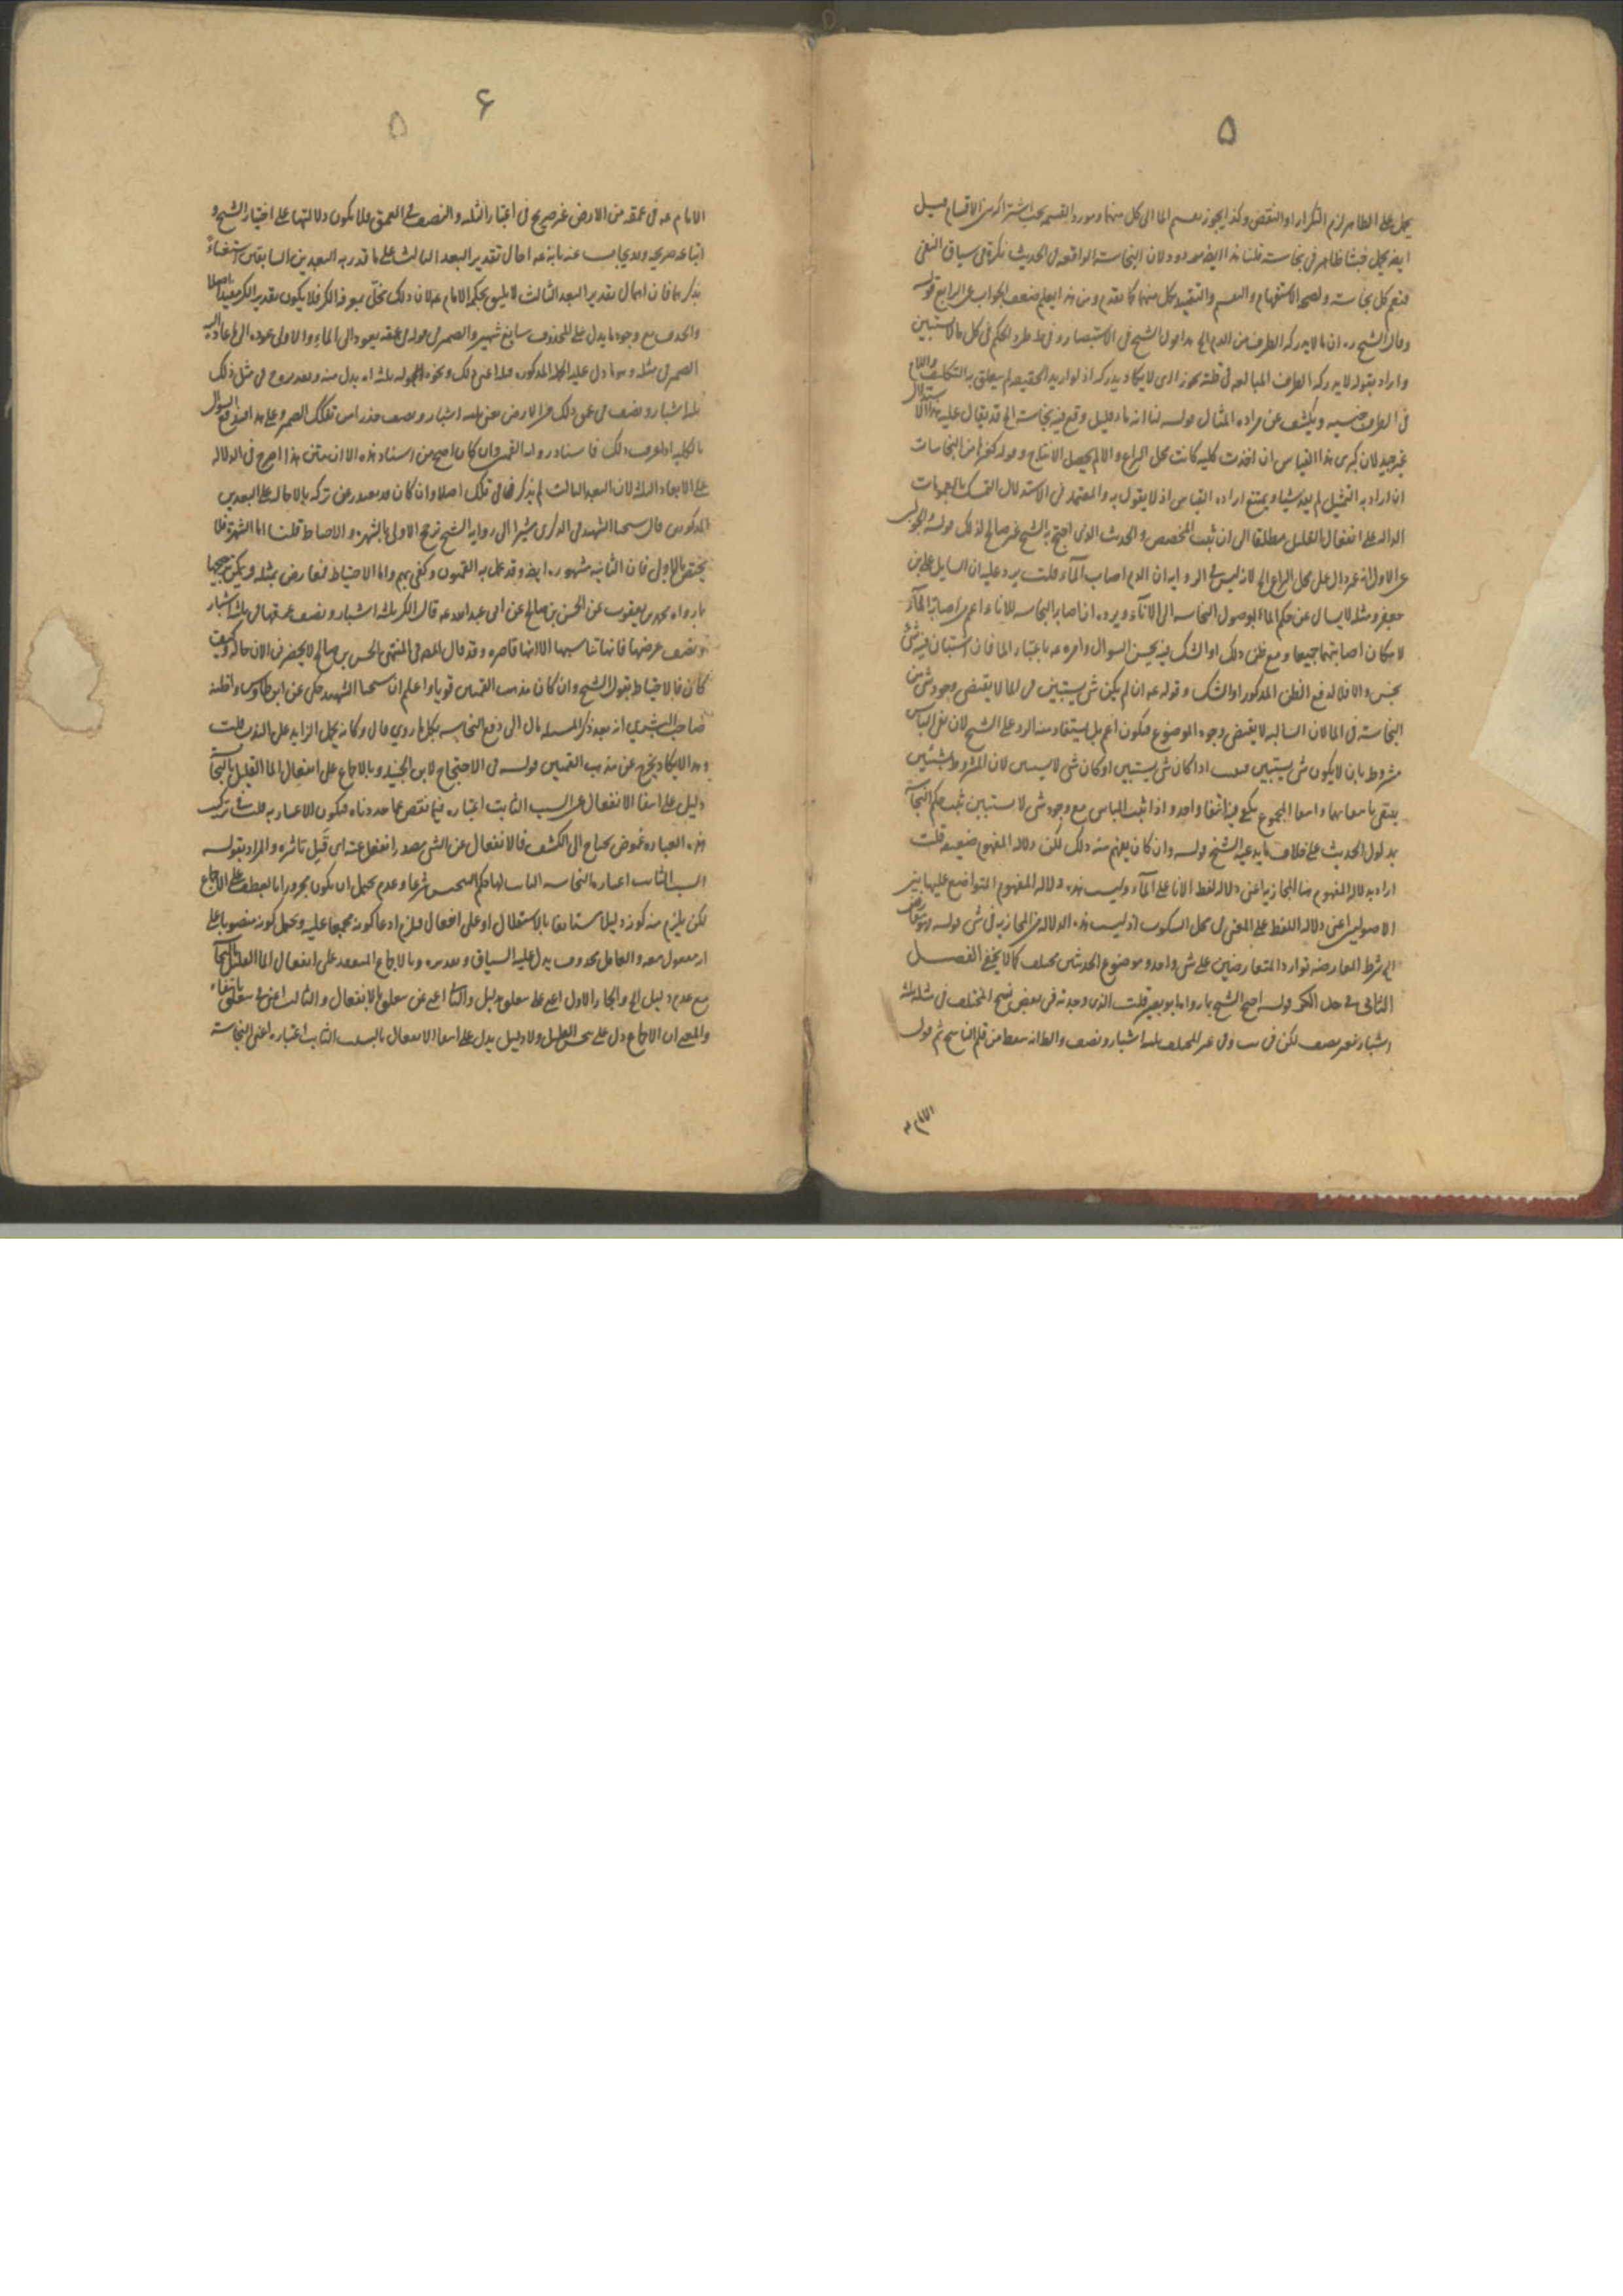 ۵
يحمل على الظاهر لزم التكرار او النقض وكذا يجوز الماء الى كل منهما ومورد القسمة يجب اشتراكه بين الاقسام قيل
ايضا يحمل خبثا ظاهر في نجاسته قلنا هذا ايضا مردود ولان النجاسة الواقعة في الحديث نكرة في سياق النفي
فتعم كل نجاسة ولصحة الاستفهام والتقسيم والتقييد بكل منهما كما تقدم ومن هذا يعلم ضعف الجواب عن الرابع قوله
وقال الشيخ ره ان ما لا يدركه الطرف من الدم الخ هذا قول الشيخ في الاستبصار وفي ط طرد الحكم في كل ما لا يستبين
واراد بقوله لا يدركه الطرف المبالغة في قلته تجوزا اي لا يكاد يدركه اذ لو اريد الحقيقة لم يتعلق به التكليف واللام
في الطرف جنسية ويكشف عن مراده المثال قوله لنا انه ماء قليل وقع فيه نجاسة الخ قد يقال عليه هذا الاستدلال
غير جيد لان كبرى هذا القياس ان اخذت كلية كانت محل النزاع والا لم يحصل الانتاج وقوله كغيرها من النجاسات
ان اراد به التمثيل لم يفد شيئا ويمتنع ارادة القياس اذ لا يقول به والمعتمد في الاستدلال التمسك بالعمومات
الدالة على انفعال القليل مطلقا الى ان يثبت المخصص والحديث الذي احتج به الشيخ غير صالح لذلك قوله والجواب
عن الاول انه غير دال على محل النزاع الخ لانه ليس في الرواية ان الدم اصاب الماء قلت يرد عليه ان السائل علي بن
جعفر ومثله لا يسال عن حكم الماء بوصول النجاسة الى الاناء ويرده ان اصابة النجاسة للاناء اعم من اصابة الماء
لامكان اصابتهما جميعا ومع ظن ذلك او الشك فيه يحسن السؤال وامره عه باعتبار الماء فان استبان فيه شئ
نجس والا فلا لدفع الظن المذكور او الشك وقوله عه ان لم يكن شئ يستبين في الماء لا يقتضي وجود شئ من
النجاسة في الماء لان السالبة لا يقتضي وجود الموضوع فيكون اعم بل يستفاد منه الرد على الشيخ لان نفي الباس
مشروط بان لا يكون شئ يستبين اذا كان شئ يستبين او كان شئ لا يستبين لان المشروط بشيئين
ينتفي بانتفائهما وانتفاء المجموع يكفي فيه انتفاء واحد واذا ثبت الباس مع وجود شئ لا يستبين ثبت حكم النجاسة
بمدلول الحديث على خلاف ما يدعيه الشيخ قوله وان كان يفهم منه ذلك لكن دلالة المفهوم ضعيفة قلت
اراد بدلالة المفهوم هنا المجازية اعني دلالة لفظ الاناء على الماء وليست هذه دلالة المفهوم المتواضع عليها بين
الاصوليين اعني دلالة اللفظ على المعنى في محل السكوت اذ ليست هذه الدلالة من المجازية في شئ قوله وهو معارض
الخ شرط المعارضة توارد المتعارضين على شئ واحد وموضوع الحديثين مختلف كما لا يخفى الفصل
الثاني في حد الكر قوله احتج الشيخ بما رواه ابو بصير قلت الذي وجدته في بعض نسخ المختلف في مثله ثلثة
اشبار بغير نصف لكن في غير المختلف ثلثة اشبار ونصف والظاهر انه سقط من قلم الناسخ ثم قول
الامام
۶
۵
الامام عه في عمقه من الارض غير صريح في اعتبار الثلثة والنصف في العمق فلا يكون دلالتها على اختيار الشيخ و
اتباعه صريحة وقد يجاب عنه بانه عه احال تقدير البعد الثالث على ما قدر به البعدين السابقين استغناء
بذكرهما فان اهمال تقدير البعد الثالث لا يليق بحكمة الامام عه لان ذلك مخل بمعرفة الكر فلا يكون تقدير الكر مفيدا اصلا
والحذف مع وجود ما يدل على المحذوف سائغ شهير والضمير في قوله في عمقه يعود الى الماء والاولى عوده الى ما عاد اليه
الضمير في مثله وهو ما دل عليه المذكورة قبله اعني ذلك ونحوه قوله ثلثة اه بدل منه
ثلثة اشبار ونصف في عمق ذلك من الارض عمق ثلثة اشبار ونصف حذرا من تفكك الضمير وعلى هذا اندفع السؤال
بالكلية اذا عرفت ذلك فاسناد رواية القميين وان كان اصح من اسناد هذه الا ان متن هذا اصرح في الدلالة
على الابعاد الثلثة لان البعد الثالث لم يذكر في تلك اصلا وان كان قد يعتذر عن تركه بالاحالة على البعدين
المذكورين قال شيخنا الشهيد في الذكرى مشيرا الى رواية الشيخ ترجح الاولى بالشهرة والاحتياط قلت اما الشهرة فلا
يختص بالاول فان الثانية مشهورة ايضا وقد عمل به القميون وكفى بهم واما الاحتياط فمعارض بمثله ويمكن ترجيحها
بما رواه محمد بن يعقوب عن الحسن بن صالح عن ابي عبد الله عه قال الكر ثلثة اشبار ونصف عمقها في ثلثة اشبار
ونصف عرضها فانها تناسبها الا انها قاصرة وقد قال المص في المنتهى الحسن بن صالح لا يحضرني الان حاله وكيف
كان فالاحتياط بقول الشيخ وان كان مذهب القميين قويا واعلم ان شيخنا الشهيد حكى عن ابن طاوس واظنه
صاحب البشرى انه بعد ذكر المسئلة مال الى دفع النجاسة بكل ما روي قال وكانه يحمل الزايد على الندب قلت
وهذا لا يكاد يخرج عن مذهب القميين قوله في الاحتجاج لابن الجنيد وبالاجماع على انفعال الماء القليل بالنجاسة
دليل على انتفاء الانفعال عن السبب الثابت اعتباره فيما نقص عما حددناه فيكون الاعتبار به قلت في تركيب
هذه العبارة غموض يحتاج الى الكشف فالانفعال عن الشئ مصدر انفعل عنه اي قبل تاثيره والمراد بقوله
السبب الثابت اعتباره النجاسة شرعا وعدم يحتمل ان يكون مجرورا بالعطف على الاجماع
لكن يلزم منه كونه دليلا مستانفا بالاستقلال او على انفعال فيلزم ادعا كونه مجمعا عليه ويحتمل كونه منصوبا على
انه مفعول معه والعامل محذوف يدل عليه السياق وتقديره وبالاجماع المنعقد على انفعال الماء القليل بالنجاسة
مع عدم دليل الخ والجار الاول اعني على متعلق بدليل والثاني اعني عن متعلق بالانفعال والثالث اعني في متعلق بانتفاء
والمعنى ان الاجماع دل على تنجس القليل ولا دليل يدل على انتفاء الانفعال بالسبب الثابت اعتباره اعني النجاسة